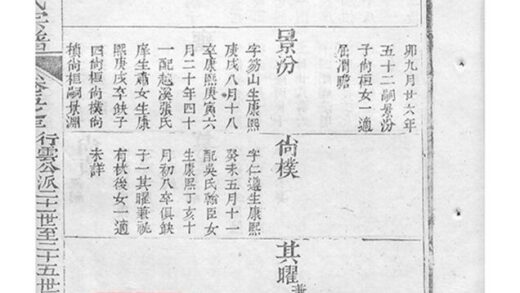 卯九月廿六年
五十二嗣景汾
子尚桓女一適
屈渭瞻
景汾
字笏山生康熙
庚戌八月十八
卒康熙庚寅六
月二十年四十
一配越溪張氏
庠生肅女生康
熙庚戌卒缺子
四尚桓尚樸尚
尚桓嗣景淵
尚樸
字仁遵生康熙
癸未五月十一
配吳氏翰臣女
生康熙丁亥十
月初八卒俱缺
子一其曜兼祧
有後女一適
未詳
其曜
氏宗譜
行雲公派二十一世至二十五世